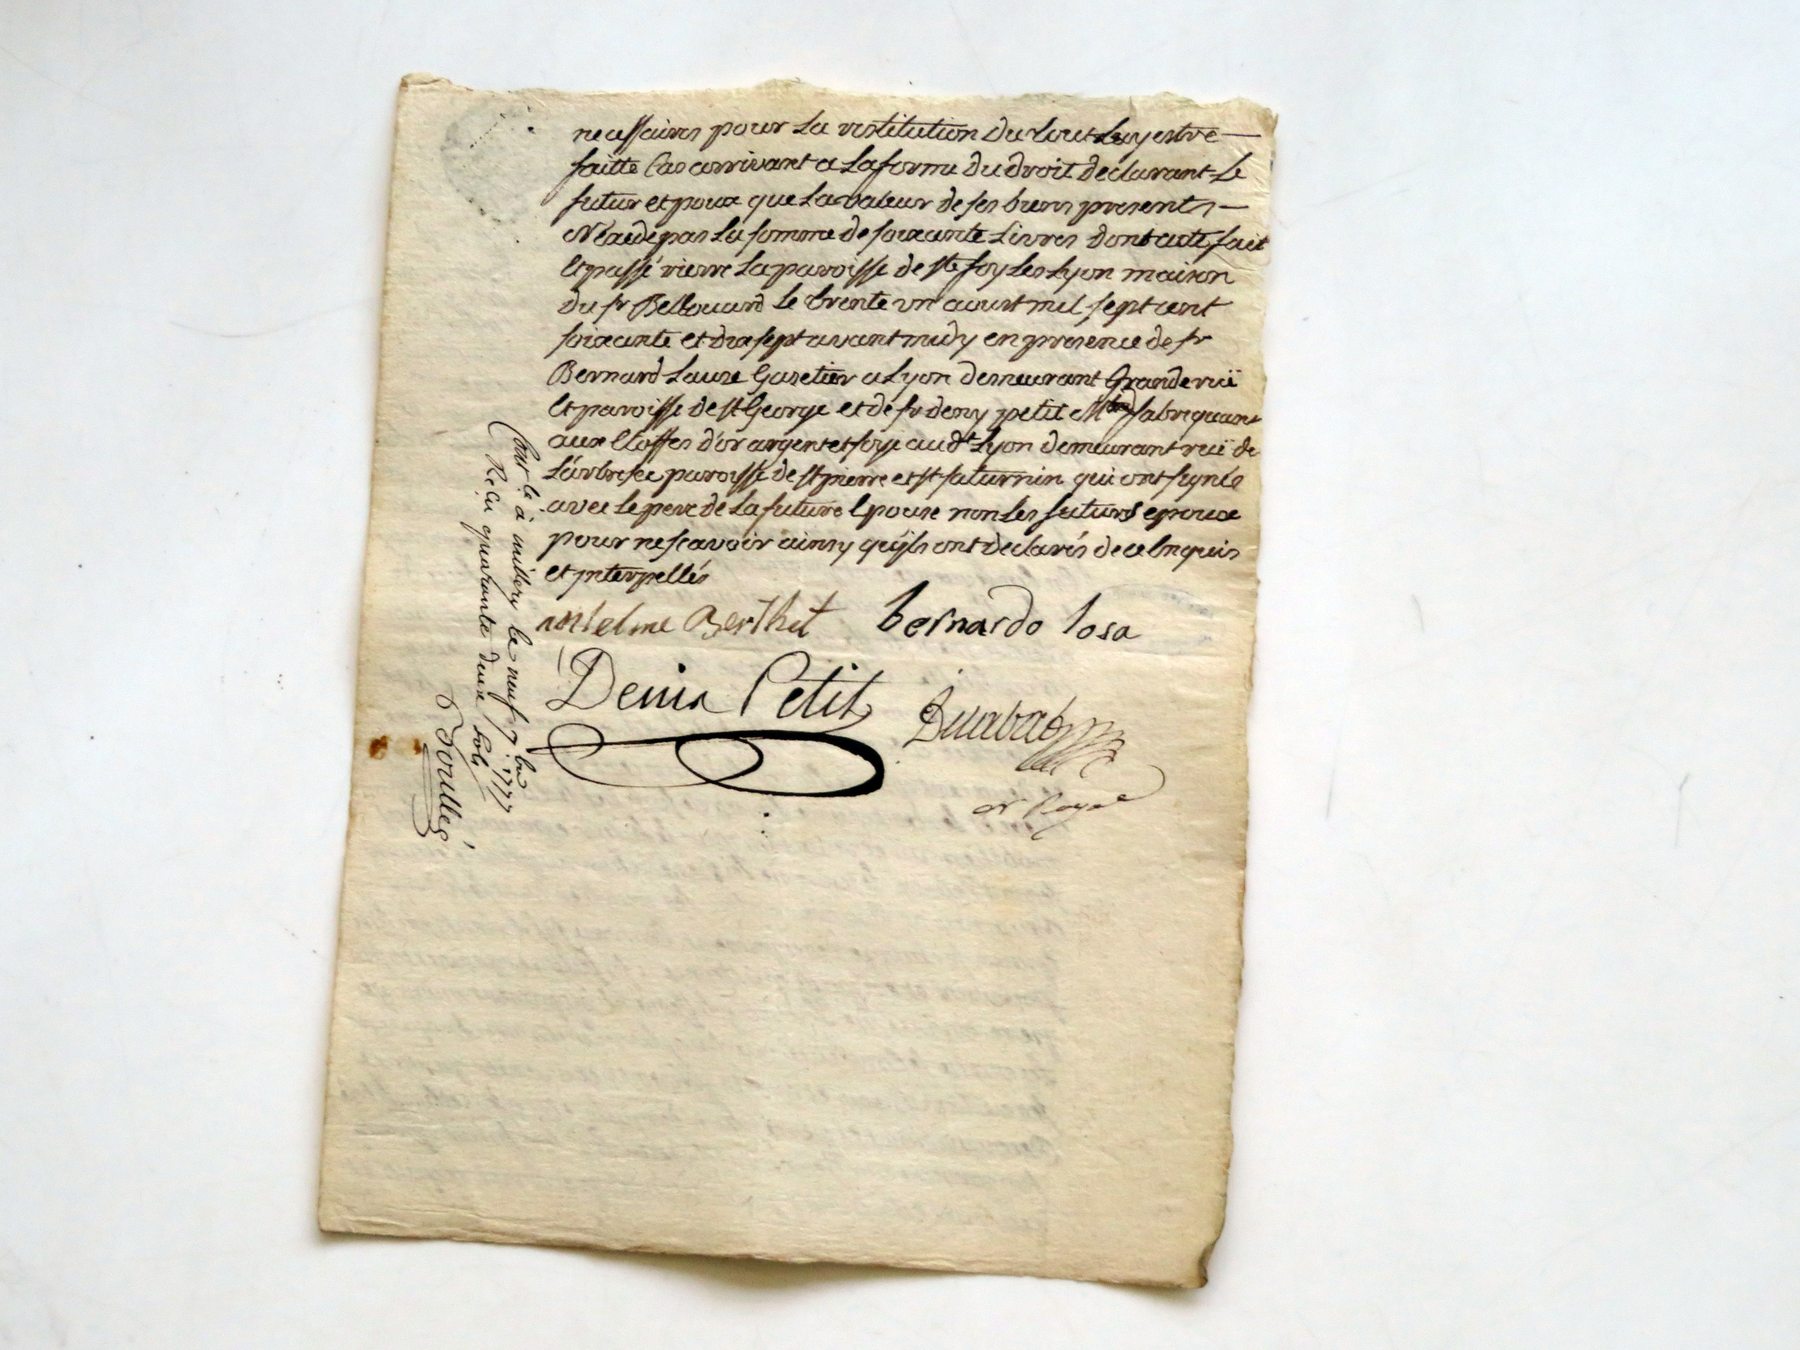 necessaires pour La restitution Du tout Luy estre
faitte Cas arrivant a La forme Du Droit Declarant Le
futur epoux que La valeur de ses biens presents
N'exede pas La somme de soixante Livres Dont acte fait
et passé riere La paroisse de Ste foy Les Lyon maison
Du sr Bellouard Le trente un aoust mil sept cent
soixante et dix sept avant midy en presence de sr
Bernard Lauze Gazetier a Lyon demeurant Grande ruë
et paroisse de St George et de sr deny petit Md fabriquant
aux Etoffes d'or argent et soye audt Lyon demeurant ruë de
L'arbre sec paroisse de St pierre et St saturnin qui ont signés
avec Le pere de La future Epouse non Les futurs epoux
pour ne scavoir ainsy qu'ils ont Declarés de ce Enquis
et interpellés
antelme Berthet bernardo losa
Denis Petit
nre Royal
Conlé à millery le neuf 7.bre 1777
Reçu quarante deux sols